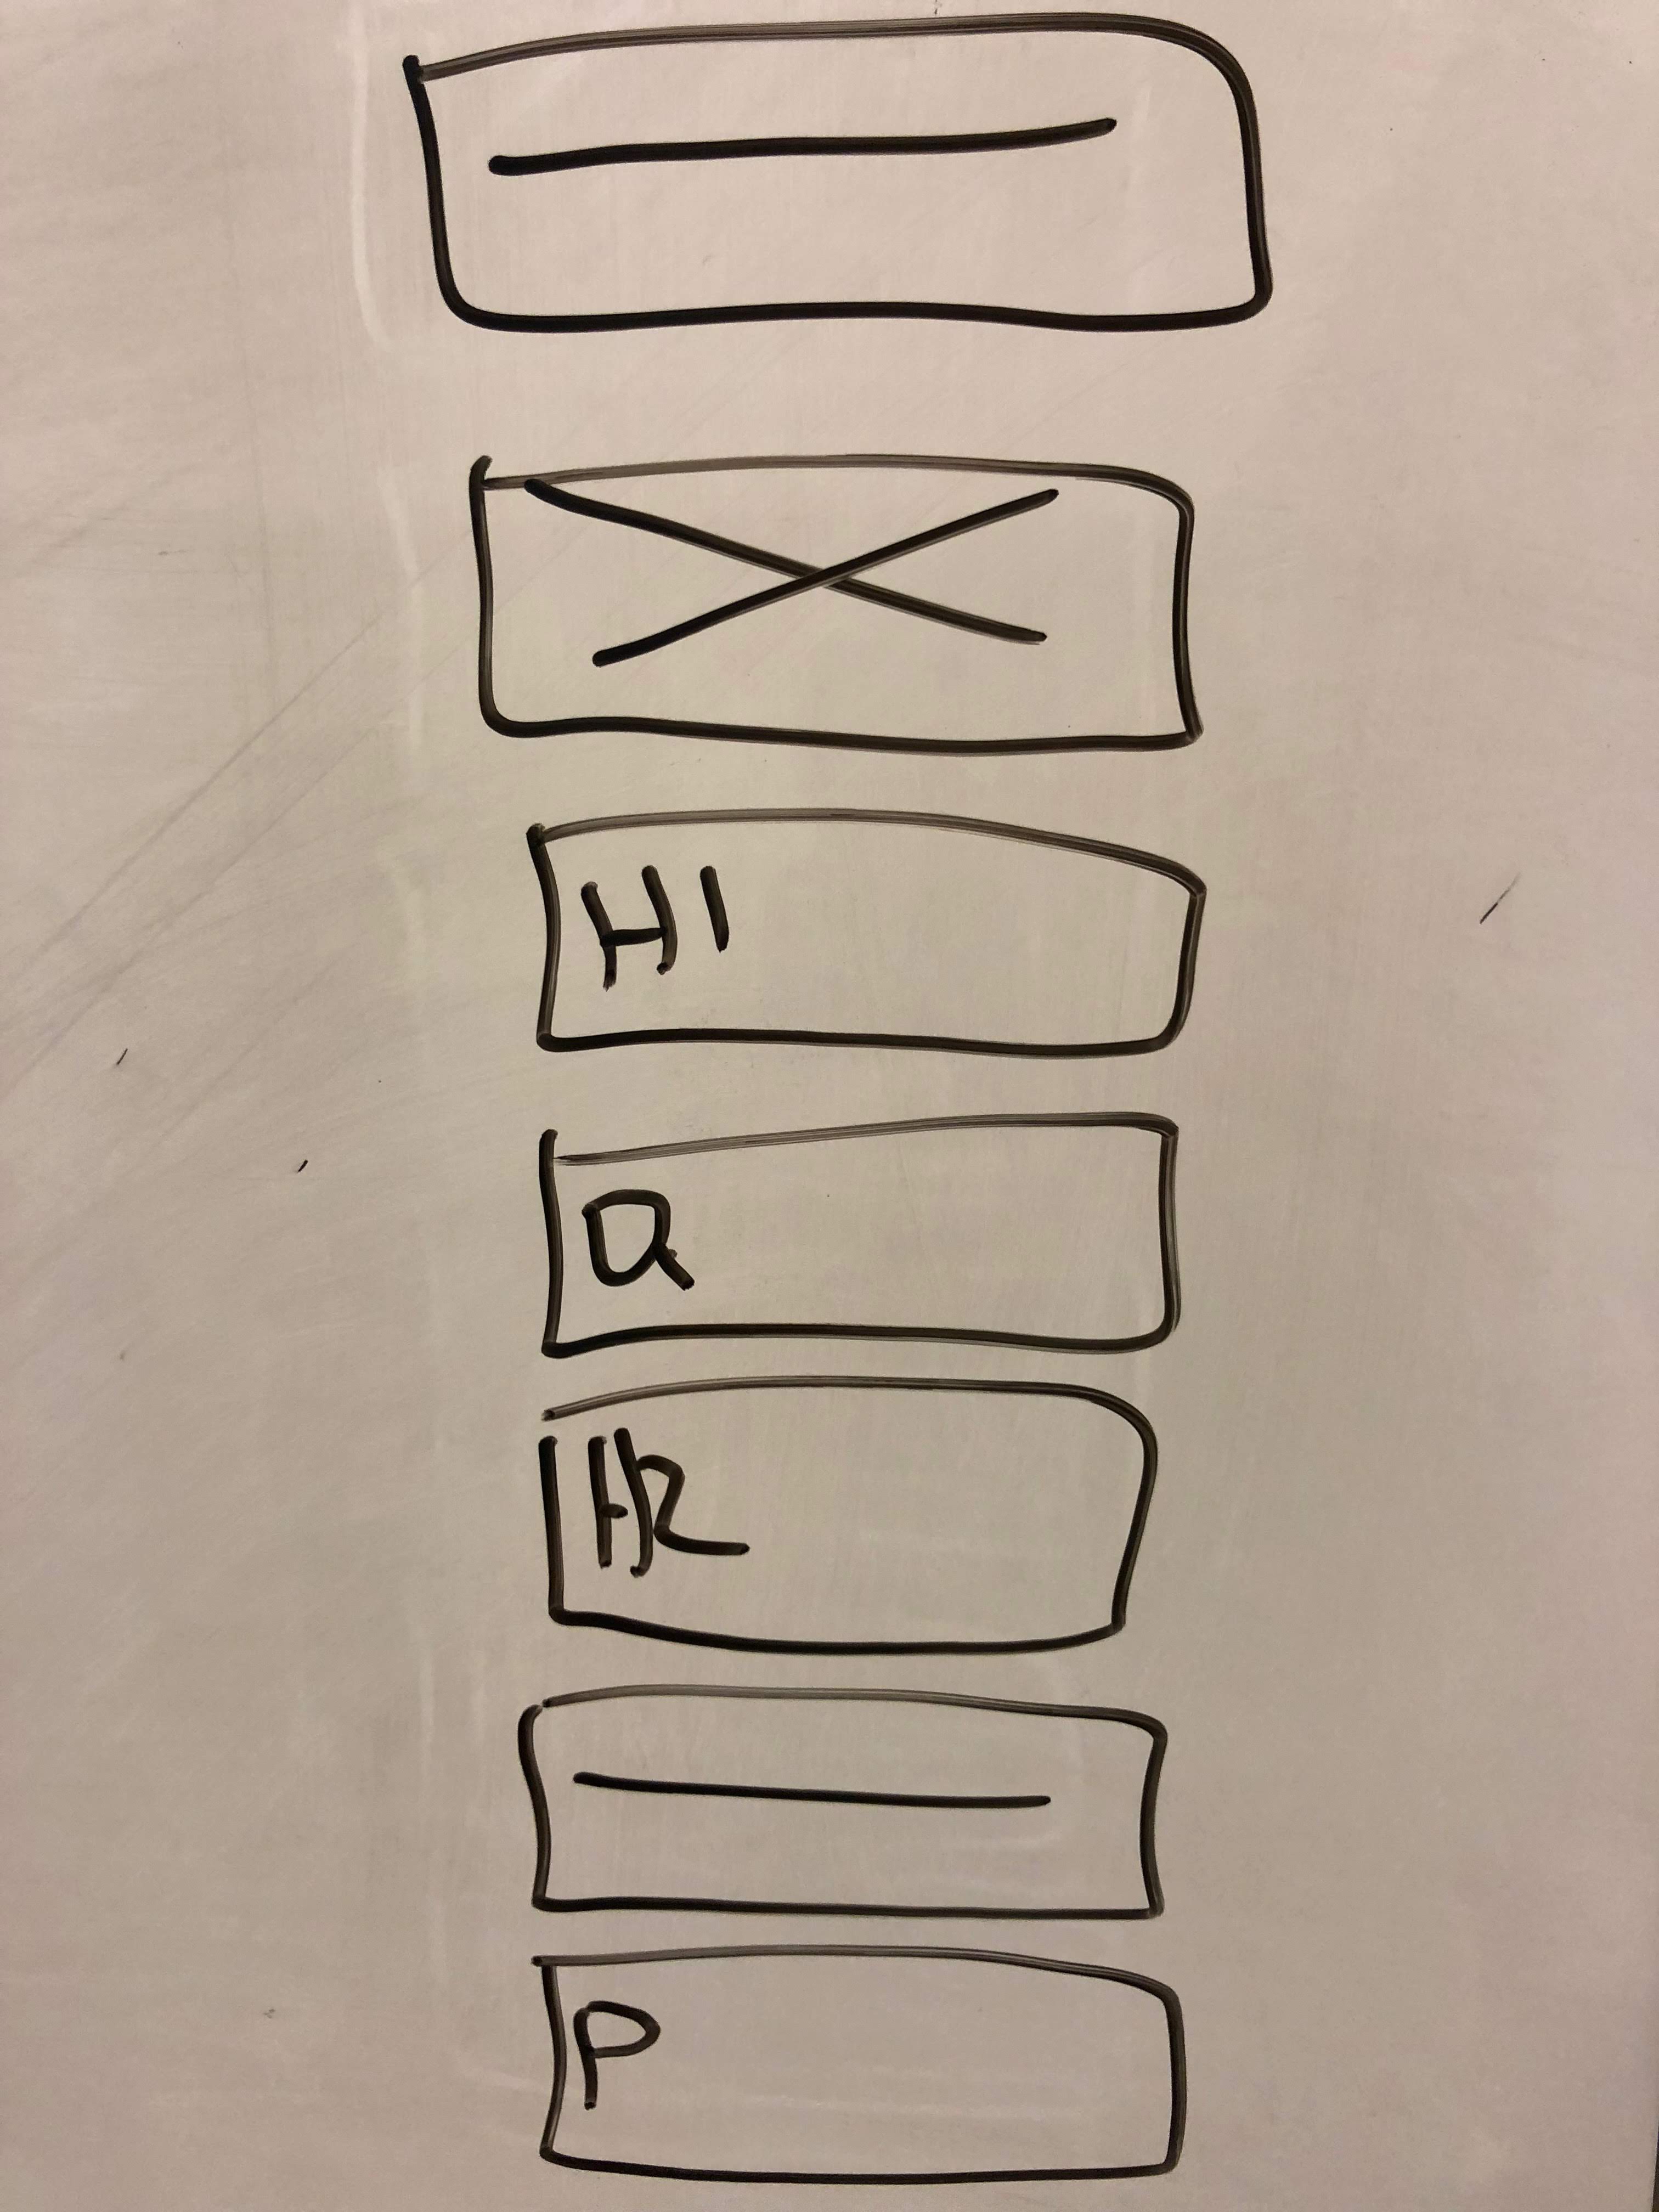 H1
Q
H2
P